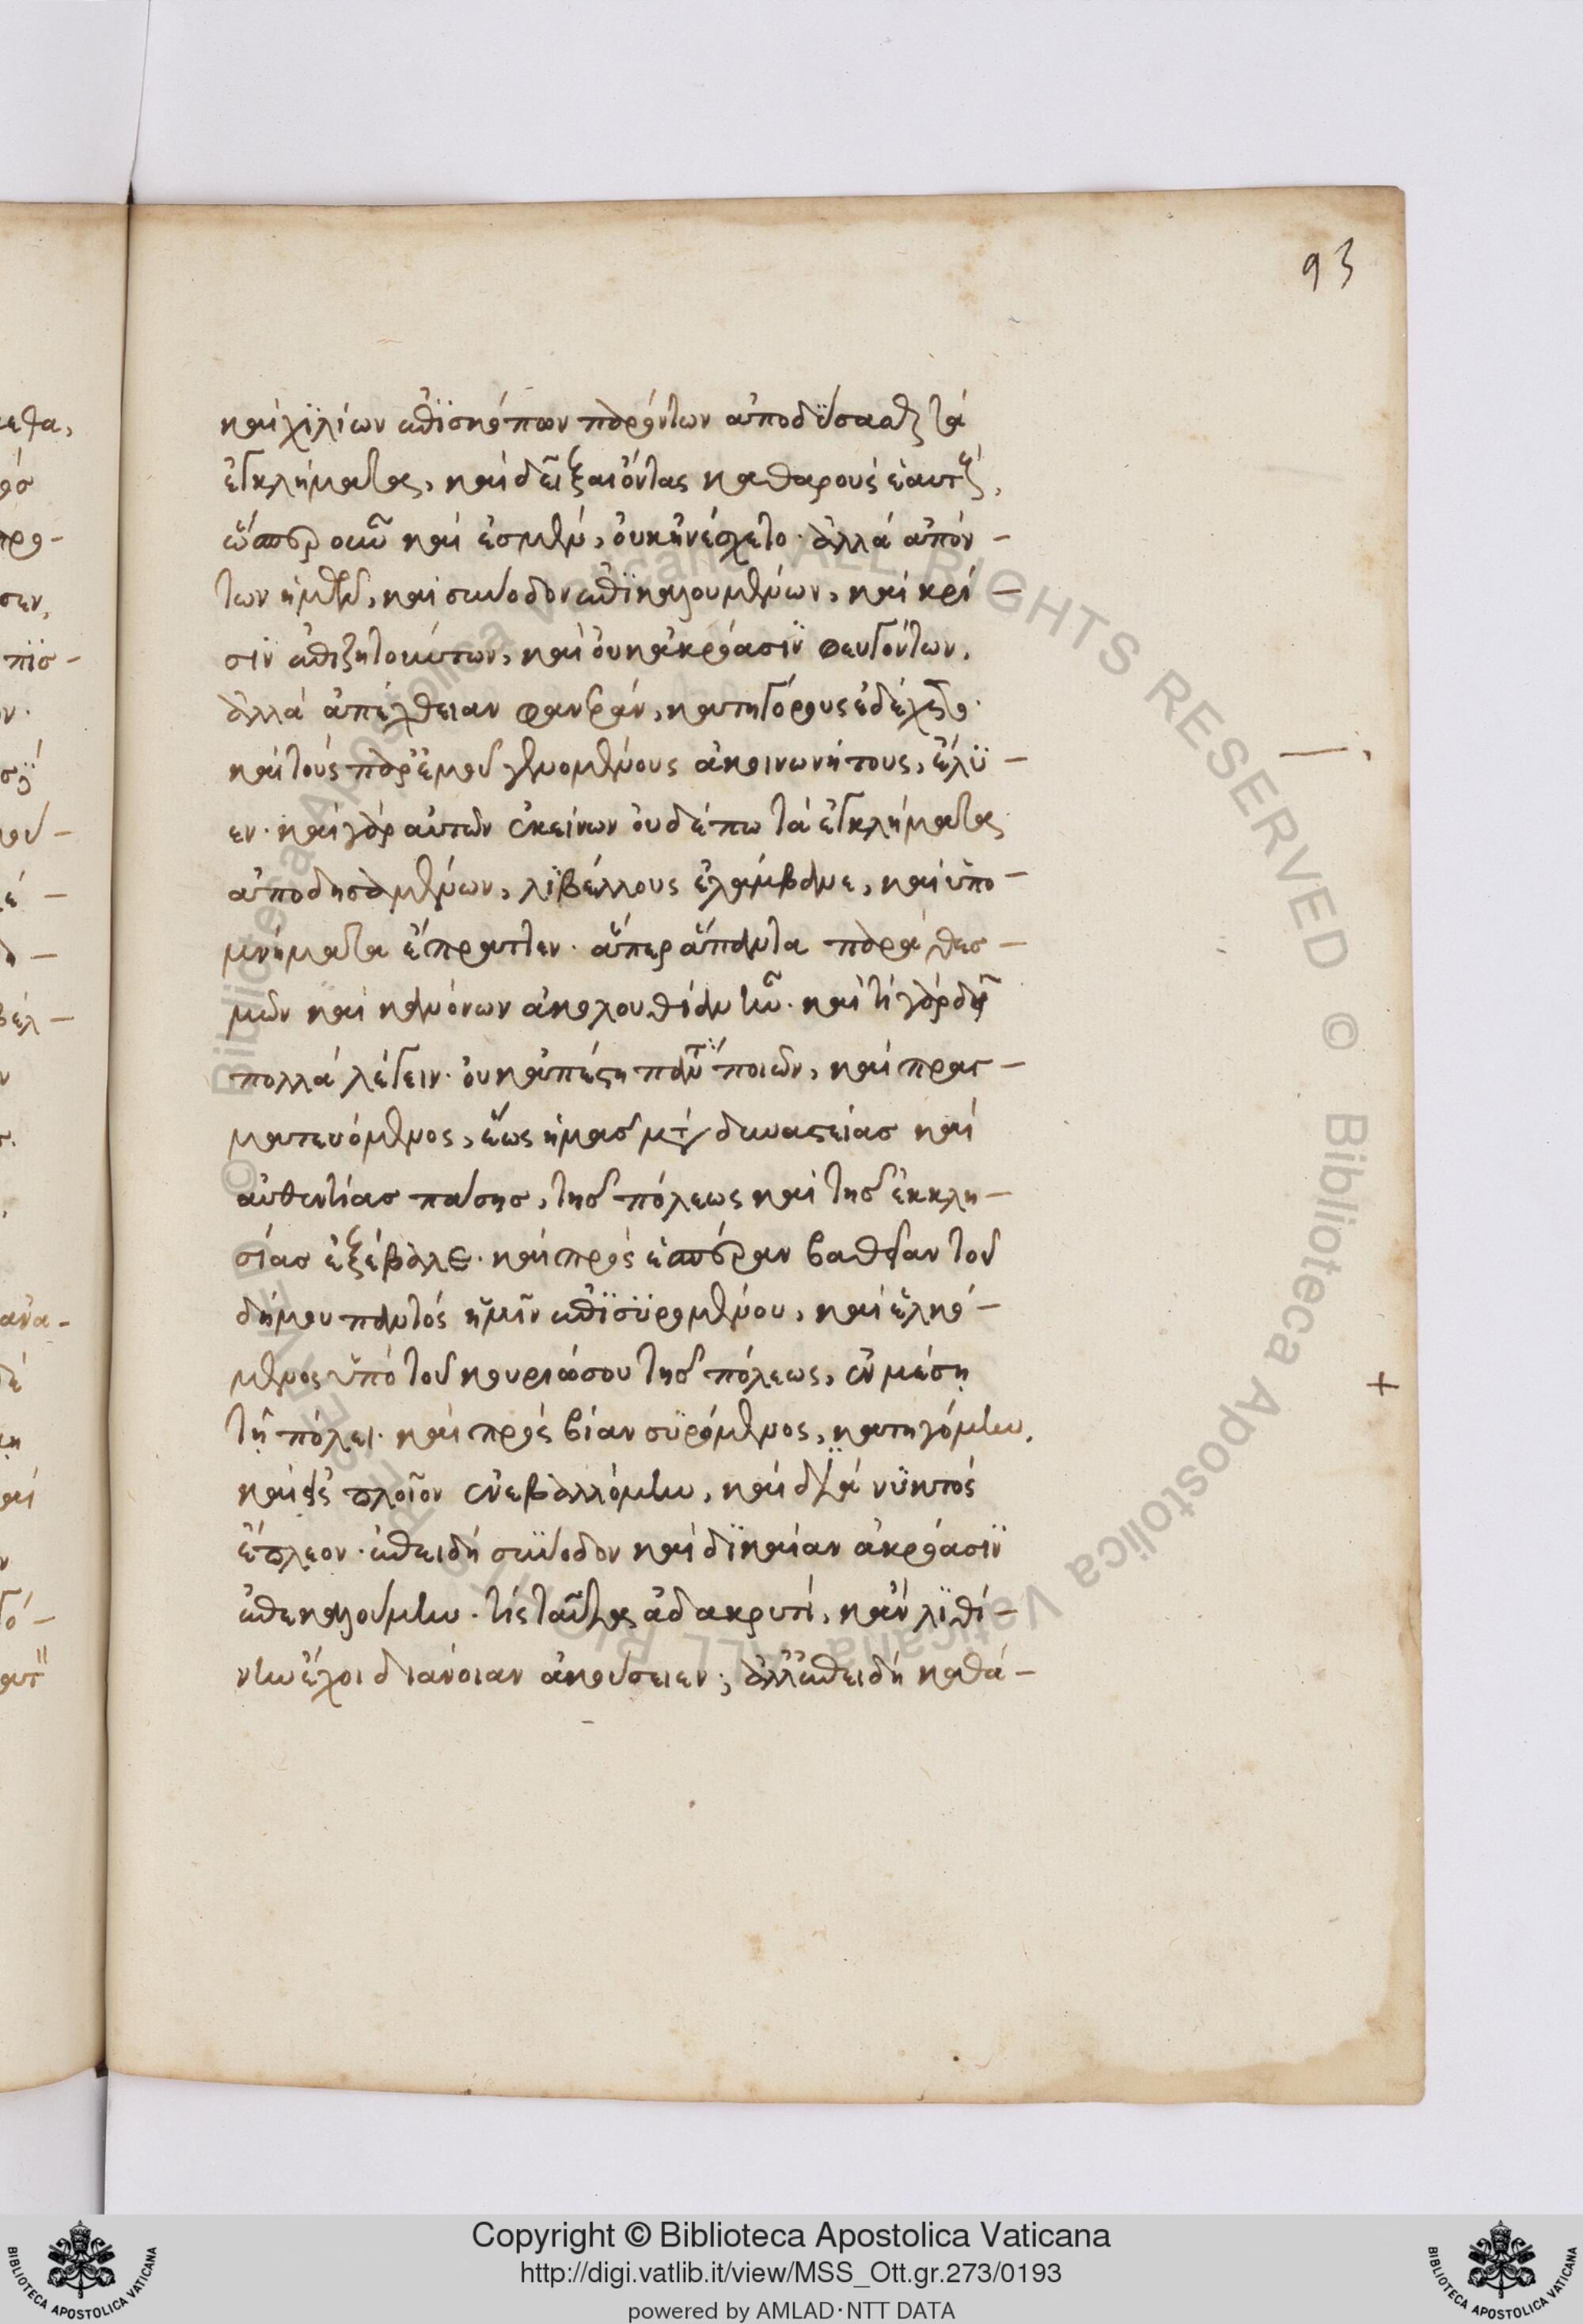 93
καὶ χϊλίων ἐπϊσκόπων παρόντων ἀποδϋσασθαι τὰ
ἐγκλήματα, καὶ δεῖξαι ὄντας καθαροὺς ἑαυτοὺς,
ὥσπερ οὖν καὶ ἐσμὲν, οὐκ ἠνέσχετο· ἀλλὰ ἀπόν-
των ἡμῶν, καὶ σύνοδον ἐπϊκαλουμένων, καὶ κρί-
σϊν ἐπιζητούντων, καὶ οὐκ ἀκρόασϊν φευγόντων,
ἀλλὰ ἀπέχθειαν φανερὰν, κατηγόρους ἐδέχετο·
καὶ τοὺς παρ' ἐμοῦ γενομένους ἀκοινωνήτους, ἔλϋ-
εν· καὶ παρ' αὐτῶν ἐκείνων οὐδέπω τὰ ἐγκλήματα
ἀποδησαμένων, λϊβέλλους ἐλάμβανε, καὶ ὑπο-
μνήματα ἔπραττεν· ἅπερ ἅπαντα παρὰ θεσ-
μῶν καὶ κανόνων ἀκολουθίαν ἦν· καὶ τί γὰρ δεῖ
πολλὰ λέγειν· οὐκ ἀπέστη πάντα ποιῶν, καὶ πραγ-
ματευόμενος, ἕως ἡμᾶς μετὰ δυναστείας καὶ
αὐθεντίας πάσης, τῆς πόλεως καὶ τῆς ἐκκλη-
σίας ἐξέβαλε· καὶ πρὸς ἑσπέραν βαθεῖαν τοῦ
δήμου παντὸς ἡμῖν ἐπϊσϋρομένου, καὶ ἑλκό-
μενος ὑπὸ τοῦ κουριώσου τῆς πόλεως, ἐν μέσῃ
τῇ πόλει· καὶ πρὸς βίαν σϋρόμενος, κατηγόμην,
καὶ εἰς πλοῖον ἐνεβαλλόμην, καὶ διὰ νϋκτὸς
ἔπλεον· ἐπειδὴ σύνοδον καὶ δϊκαίαν ἀκρόασϊν
ἐπεκαλούμην· τίς ταῦτα ἀδακρυτὶ, κἂν λϊθί-
νην ἔχοι διάνοιαν ἀκούσειεν; ἀλλ' ἐπειδὴ καθά-
Copyright © Biblioteca Apostolica Vaticana
http://digi.vatlib.it/view/MSS_Ott.gr.273/0193
powered by AMLAD·NTT DATA